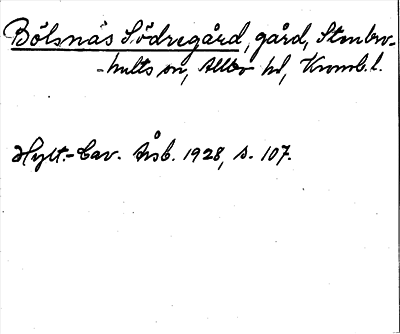 Bölsnäs Södregård, gård, Stenbro-
-hults sn, Allbo hd, Kronob. l.
Hylt.-Cav. Åsb. 1928, s. 107.